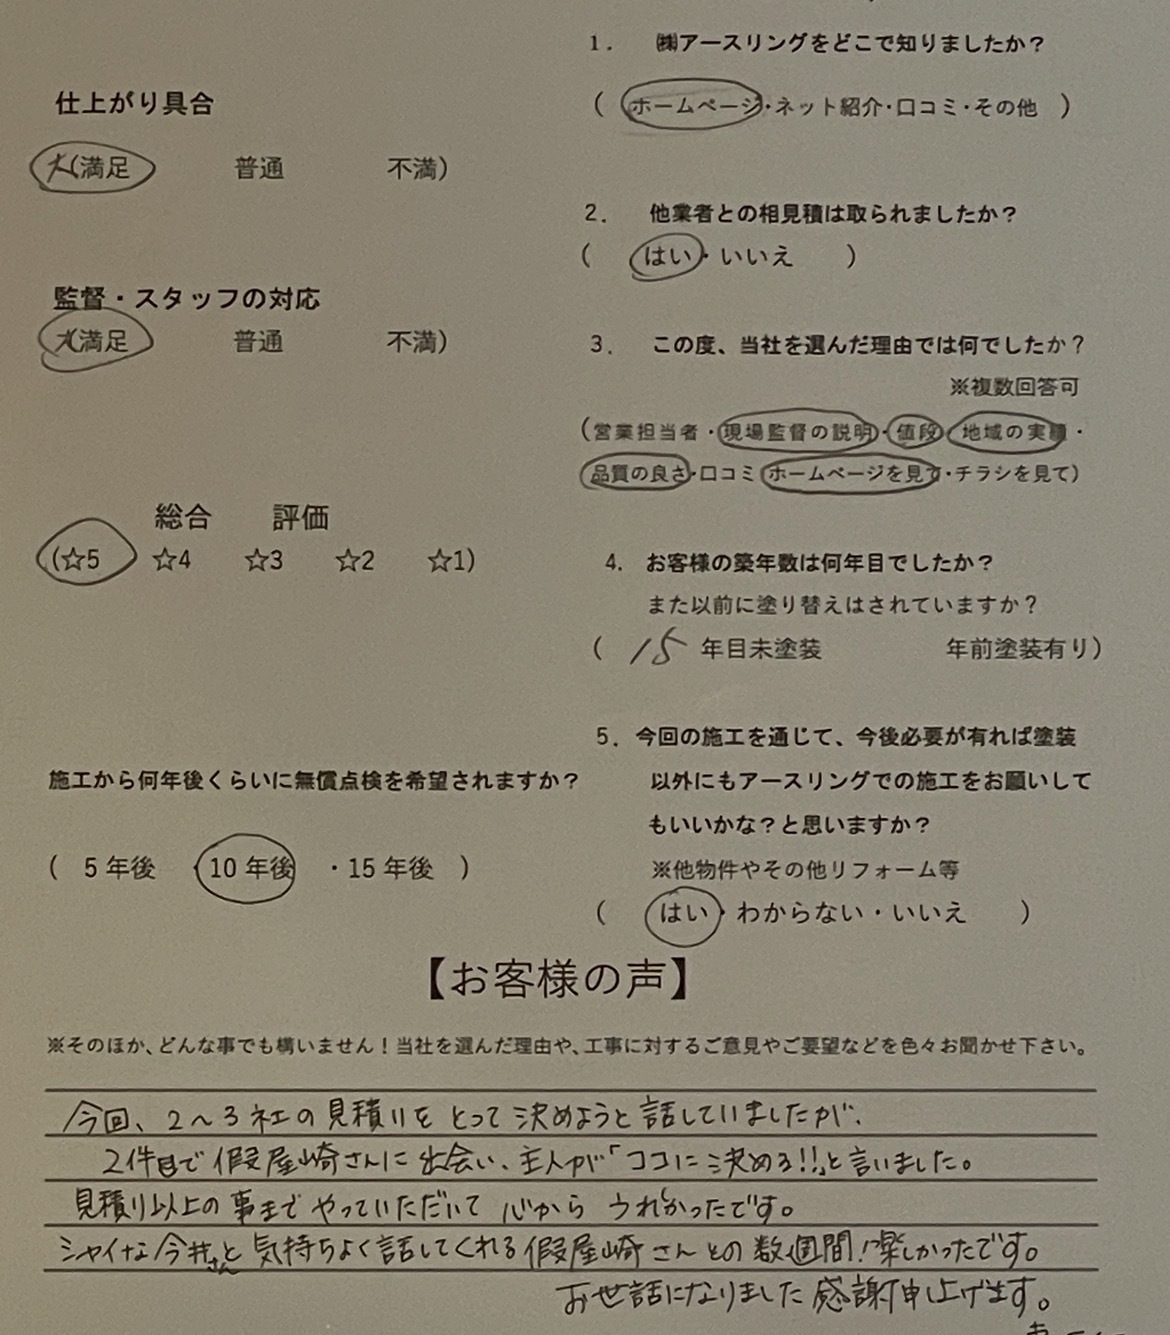 仕上がり具合
大(満足 普通 不満)
監督・スタッフの対応
大(満足 普通 不満)
総合 評価
(☆5 ☆4 ☆3 ☆2 ☆1)
施工から何年後くらいに無償点検を希望されますか?
( 5年後 ・10年後 ・15年後 )
1. ㈱アースリングをどこで知りましたか?
( ホームページ・ネット紹介・口コミ・その他 )
2. 他業者との相見積は取られましたか?
( はい・いいえ )
3. この度、当社を選んだ理由では何でしたか?
※複数回答可
(営業担当者・現場監督の説明・値段・地域の実績・
品質の良さ・口コミ・ホームページを見て・チラシを見て)
4. お客様の築年数は何年目でしたか?
また以前に塗り替えはされていますか?
( 15 年目未塗装 年前塗装有り)
5. 今回の施工を通じて、今後必要が有れば塗装
以外にもアースリングでの施工をお願いして
もいいかな?と思いますか?
※他物件やその他リフォーム等
( はい・わからない・いいえ )
【お客様の声】
※そのほか、どんな事でも構いません!当社を選んだ理由や、工事に対するご意見やご要望などを色々お聞かせ下さい。
今回、2~3社の見積りをとって決めようと話していましたが、
2件目で假屋崎さんに出会い、主人が「ココに決める!!」と言いました。
見積り以上の事までやっていただいて心からうれしかったです。
シャイな今井さんと気持ちよく話してくれる假屋崎さんとの数週間!楽しかったです。
お世話になりました感謝申し上げます。